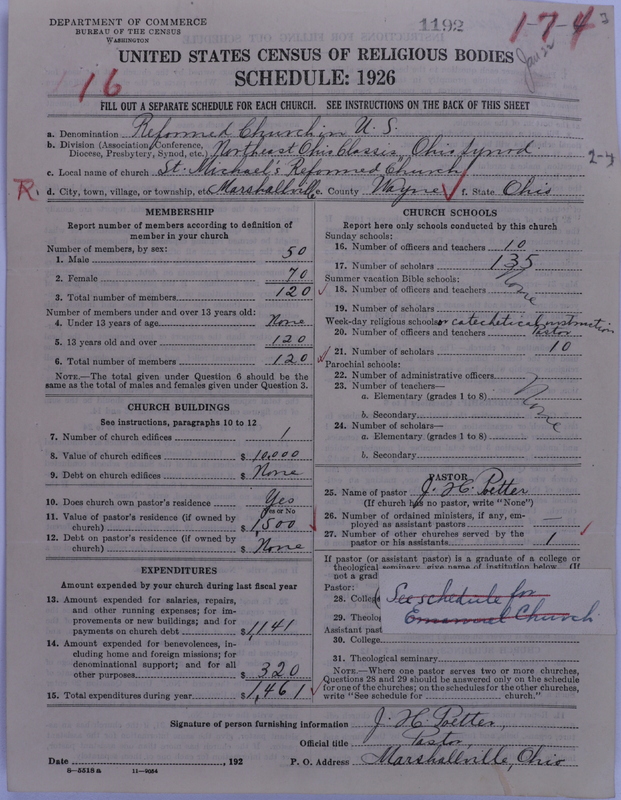 DEPARTMENT OF COMMERCE
BUREAU OF THE CENSUS
WASHINGTON
1192
1-7-4
Jan 22
UNITED STATES CENSUS OF RELIGIOUS BODIES
16
SCHEDULE: 1926
FILL OUT A SEPARATE SCHEDULE FOR EACH CHURCH. SEE INSTRUCTIONS ON THE BACK OF THIS SHEET
a. Denomination Reformed Church in U. S.
b. Division (Association, Conference, Diocese, Presbytery, Synod, etc.) Northeast Ohio Classis Ohio Synod
2-4
c. Local name of church St. Michael's Reformed Church
R. d. City, town, village, or township, etc. Marshallville e. County Wayne f. State Ohio
MEMBERSHIP
Report number of members according to definition of
member in your church
Number of members, by sex:
1. Male 50
2. Female 70
3. Total number of members 120
Number of members under and over 13 years old:
4. Under 13 years of age None
5. 13 years old and over 120
6. Total number of members 120
NOTE.—The total given under Question 6 should be the
same as the total of males and females given under Question 3.
CHURCH BUILDINGS
See instructions, paragraphs 10 to 12
7. Number of church edifices 1
8. Value of church edifices $ 10,000
9. Debt on church edifices $ None
10. Does church own pastor's residence Yes
Yes or No
11. Value of pastor's residence (if owned by
church) $ 1,500
12. Debt on pastor's residence (if owned by
church) $ None
EXPENDITURES
Amount expended by your church during last fiscal year
13. Amount expended for salaries, repairs,
and other running expenses; for im-
provements or new buildings; and for
payments on church debt $ 1,141
14. Amount expended for benevolences, in-
cluding home and foreign missions; for
denominational support; and for all
other purposes $ 320
15. Total expenditures during year $ 1,461
CHURCH SCHOOLS
Report here only schools conducted by this church
Sunday schools:
16. Number of officers and teachers 10
17. Number of scholars 135
Summer vacation Bible schools:
18. Number of officers and teachers None
19. Number of scholars
Week-day religious schools: or catechetical instruction
20. Number of officers and teachers Pastor
21. Number of scholars 10
Parochial schools:
22. Number of administrative officers
23. Number of teachers—
a. Elementary (grades 1 to 8)
None
b. Secondary
24. Number of scholars—
a. Elementary (grades 1 to 8)
b. Secondary
PASTOR
25. Name of pastor J. H. Poetter
(If church has no pastor, write "None")
26. Number of ordained ministers, if any, em-
ployed as assistant pastors —
27. Number of other churches served by the
pastor or his assistants 1
If pastor (or assistant pastor) is a graduate of a college or
theological seminary, give name of institution below. (If
not a grad
Pastor:
28. Colleg
29. Theolo
See schedule for
Emanuel Church
Assistant past
30. College
31. Theological seminary
NOTE.—Where one pastor serves two or more churches,
Questions 28 and 29 should be answered only on the schedule
for one of the churches; on the schedules for the other churches,
write "See schedule for church."
Signature of person furnishing information J. H. Poetter,
Official title Pastor
Date , 192 P. O. Address Marshallville, Ohio
8—5518a 11—9034